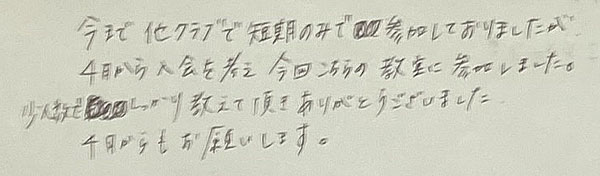 今まで他クラブで短期のみで参加しておりましたが
4月から入会を考え今回こちらの教室に参加しました。
少人数でしっかり教えて頂きありがとうございました
4月からもお願いします。